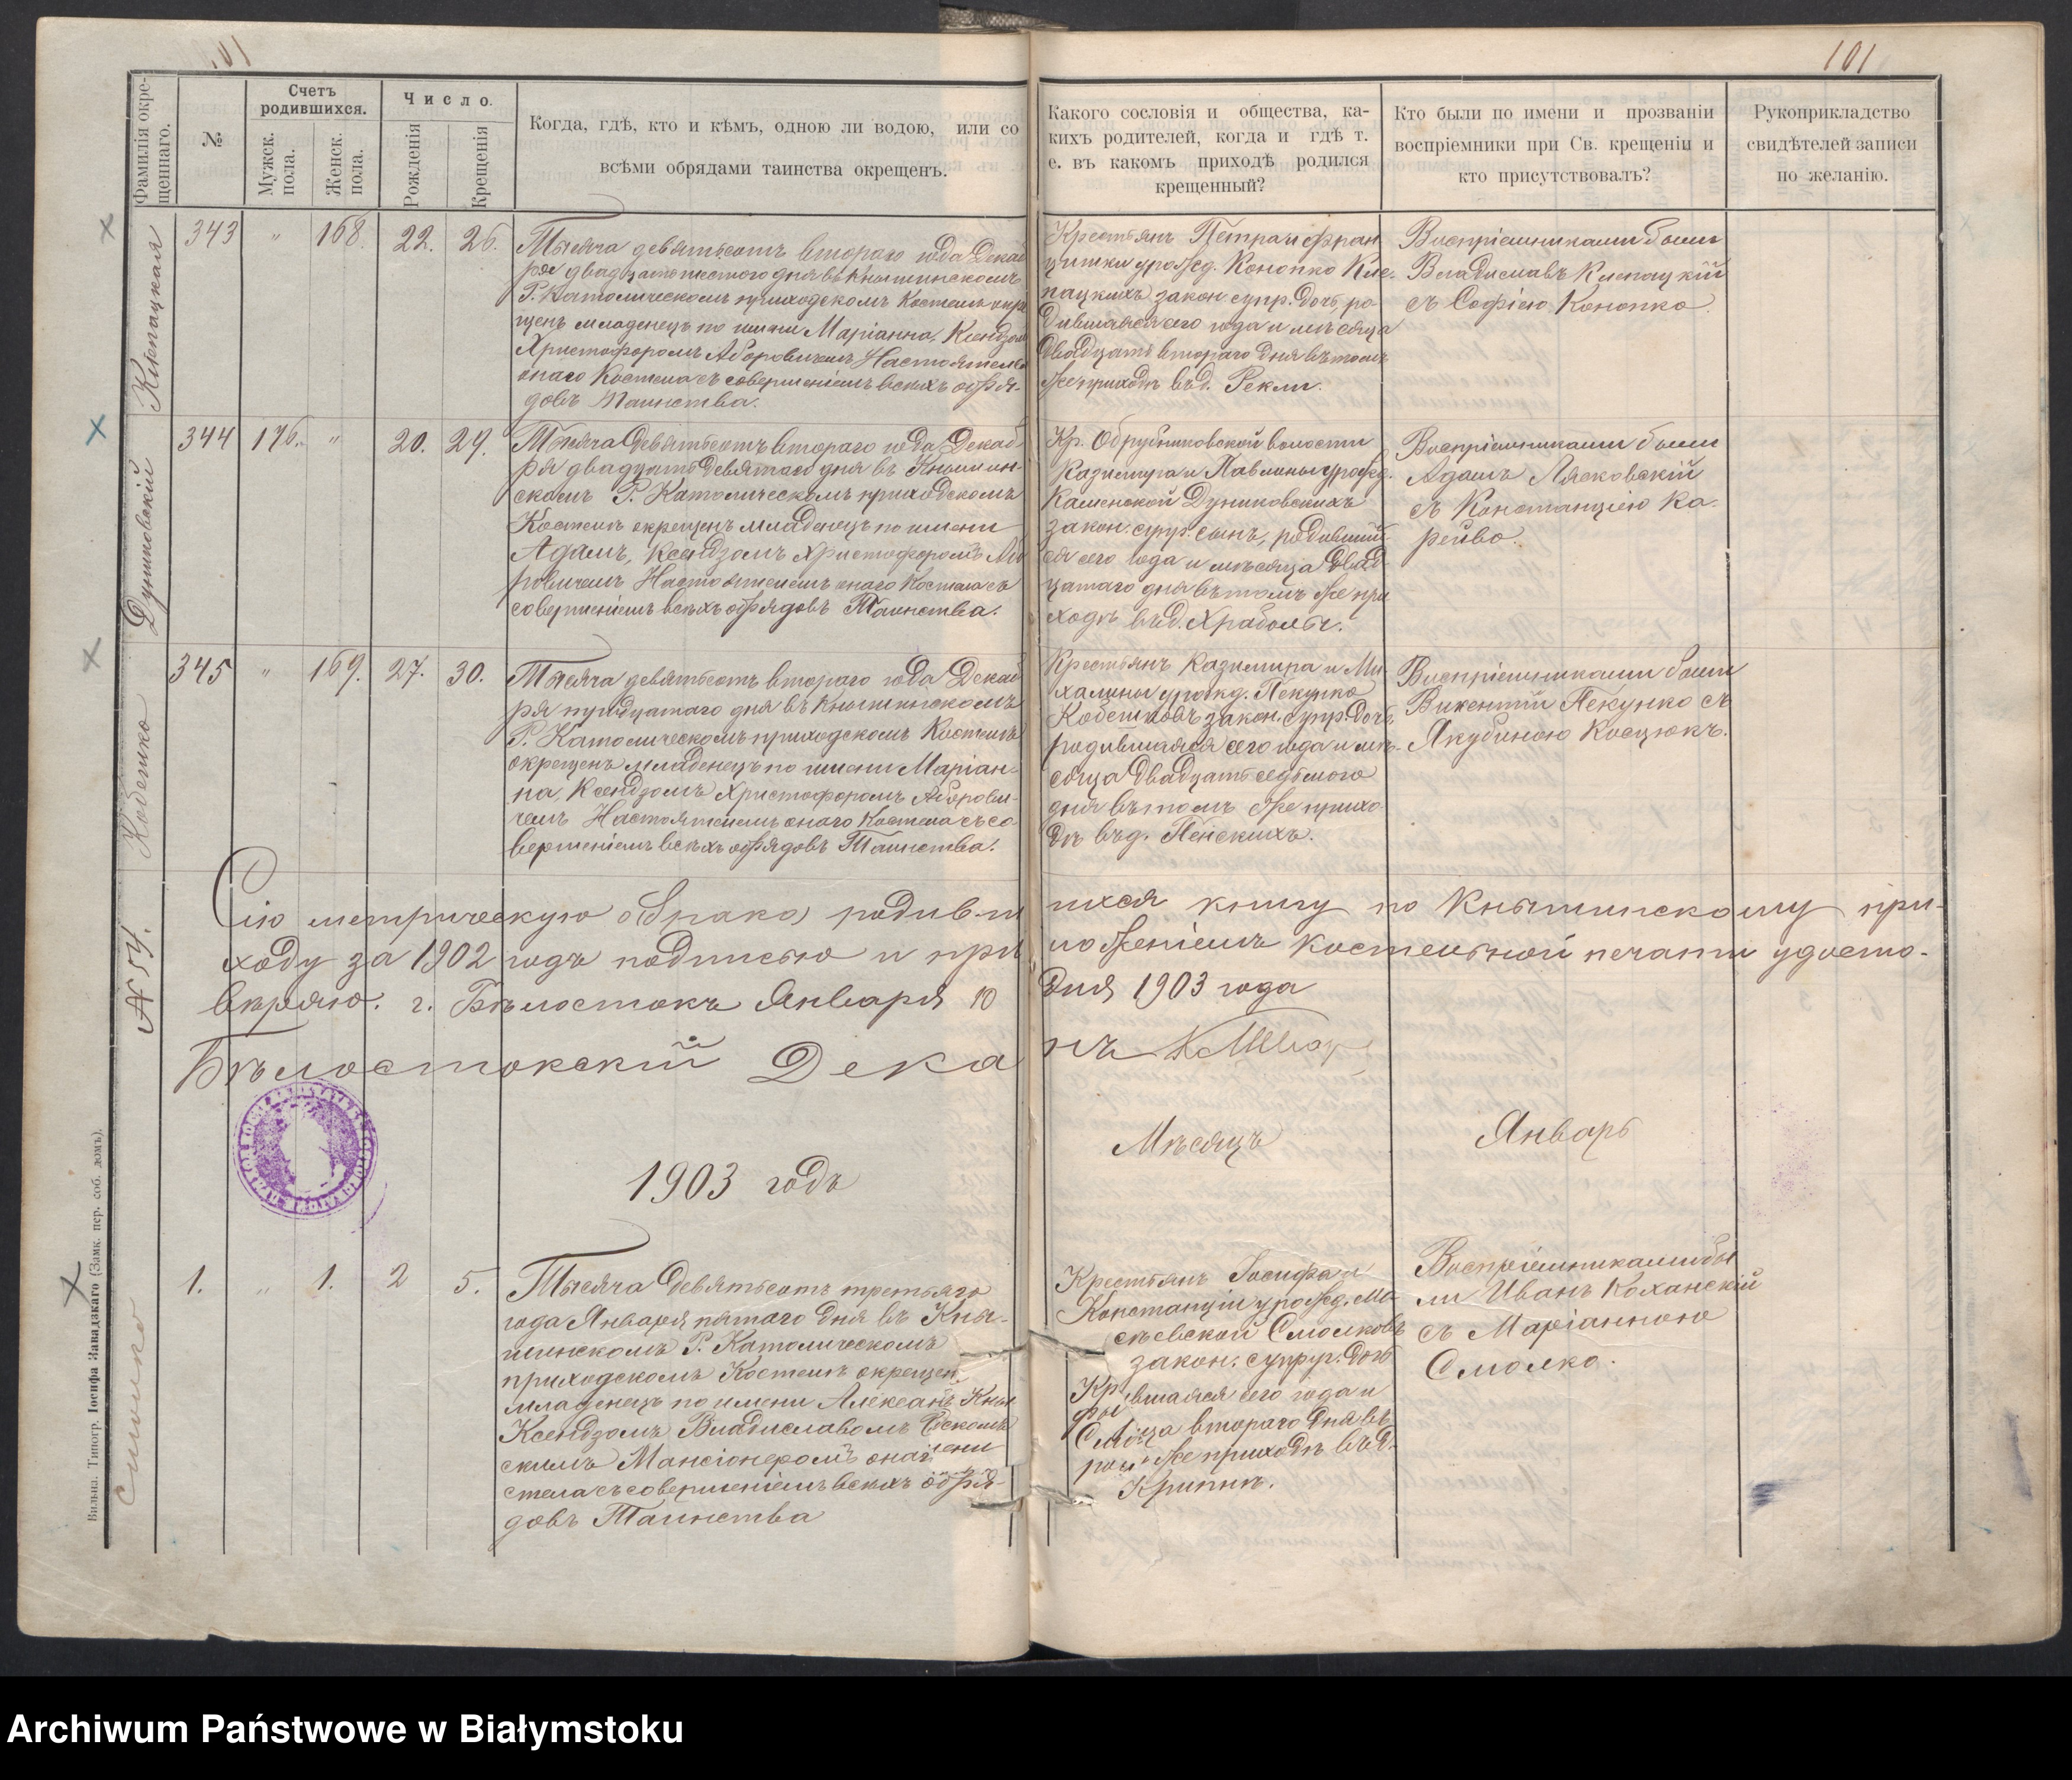 101
101
Фамилія окре-
щеннаго.
№
Счетъ
родившихся.
Мужск.
пола.
Женск.
пола.
Число.
Рожденія
Крещенія
Когда, гдѣ, кто и кѣмъ, одною ли водою, или со
всѣми обрядами таинства окрещенъ.
Какого сословія и общества, ка-
кихъ родителей, когда и гдѣ т.
е. въ какомъ приходѣ родился
крещенный?
Кто были по имени и прозваніи
воспріемники при Св. крещеніи и
кто присутствовалъ?
Рукоприкладство
свидѣтелей записи
по желанію.
Клепацкая
343 " 168. 22. 26.
Тысяча девятьсотъ второго года Декаб
ря двадцать шестого дня въ Кнышинскомъ
Р. Католическомъ приходскомъ Костелѣ окре
щенъ младенецъ по имени Маріанна, Ксендзомъ
Христофоромъ Аборовичемъ Настоятелемъ
онаго Костела съ совершеніемъ всѣхъ обря-
довъ Таинства.
Крестьянъ Петра и Фран
цишки урожд. Конопко Кле-
пацкихъ закон. супр. дочь, ро-
дившаяся сего года и мѣсяца
двадцать второго дня въ томъ
же приходѣ въ д. Рекли.
Воспріемниками были
Владиславъ Клепацкій
съ Софіею Конопко.
Дуниковскій
344 176. " 20. 29.
Тысяча девятьсотъ второго года Декаб
ря двадцать девятаго дня въ Кнышин-
скомъ Р. Католическомъ приходскомъ
Костелѣ окрещенъ младенецъ по имени
Адамъ, Ксендзомъ Христофоромъ Або
ровичемъ Настоятелемъ онаго Костела съ
совершеніемъ всѣхъ обрядовъ Таинства.
Кр. Обрубниковской волости
Казимира и Павлины урожд.
Каменской Дуниковскихъ
закон. супр. сынъ, родивший
ся сего года и мѣсяца двад
цатаго дня въ томъ же при
ходѣ въ д. Храболы.
Воспріемниками были
Адамъ Лясковскій
съ Констанціею Ка-
рейво.
Кобешко
345 " 169. 27. 30.
Тысяча девятьсотъ второго года Декаб
ря тридцатаго дня въ Кнышинскомъ
Р. Католическомъ приходскомъ Костелѣ
окрещенъ младенецъ по имени Маріан-
на, Ксендзомъ Христофоромъ Аборови-
чемъ Настоятелемъ онаго Костела съ со-
вершеніемъ всѣхъ обрядовъ Таинства.
Крестьянъ Казимира и Ми-
халины урожд. Пекунко
Кобешковъ закон. супр. дочь,
родившаяся сего года и мѣ-
сяца двадцать седьмого
дня въ томъ же прихо
дѣ въ д. Пенскихъ.
Воспріемниками были
Викентій Пекунко съ
Якубиною Коцюкъ.
№ 54.
Сію метрическую о бракѣ родив-ши
хся книгу по Кнышинскому при-
ходу за 1902 годъ подписью и при
ложеніемъ костельной печати удосто-
вѣряю. г. Бѣлостокъ Января 10
дня 1903 года
Бѣлостокскій Дека
нъ
1903 годъ
Мѣсяцъ Январь
1. " 1. 2 5.
Тысяча девятьсотъ третьяго
года Января пятаго дня въ Кны-
шинскомъ Р. Католическомъ
приходскомъ Костелѣ окрещен
младенецъ по имени
Ксендзомъ Владиславомъ
скимъ Мансіонеромъ онаг
стела съ совершеніемъ всѣхъ обря-
довъ Таинства
Крестьянъ Іосифа и
Констанціи урожд. Мо-
сѣевской Смолковъ
закон. супруг. дочь
вшаяся сего года и
яца второго дня въ
же приходѣ въ д.
Крипнѣ.
Воспріемниками бы
ли Иванъ Коханскій
съ Маріанною
Смолко.
Вильна. Типогр. Іосифа Завадзкаго (Замк. пер. соб. домъ).
Archiwum Państwowe w Białymstoku